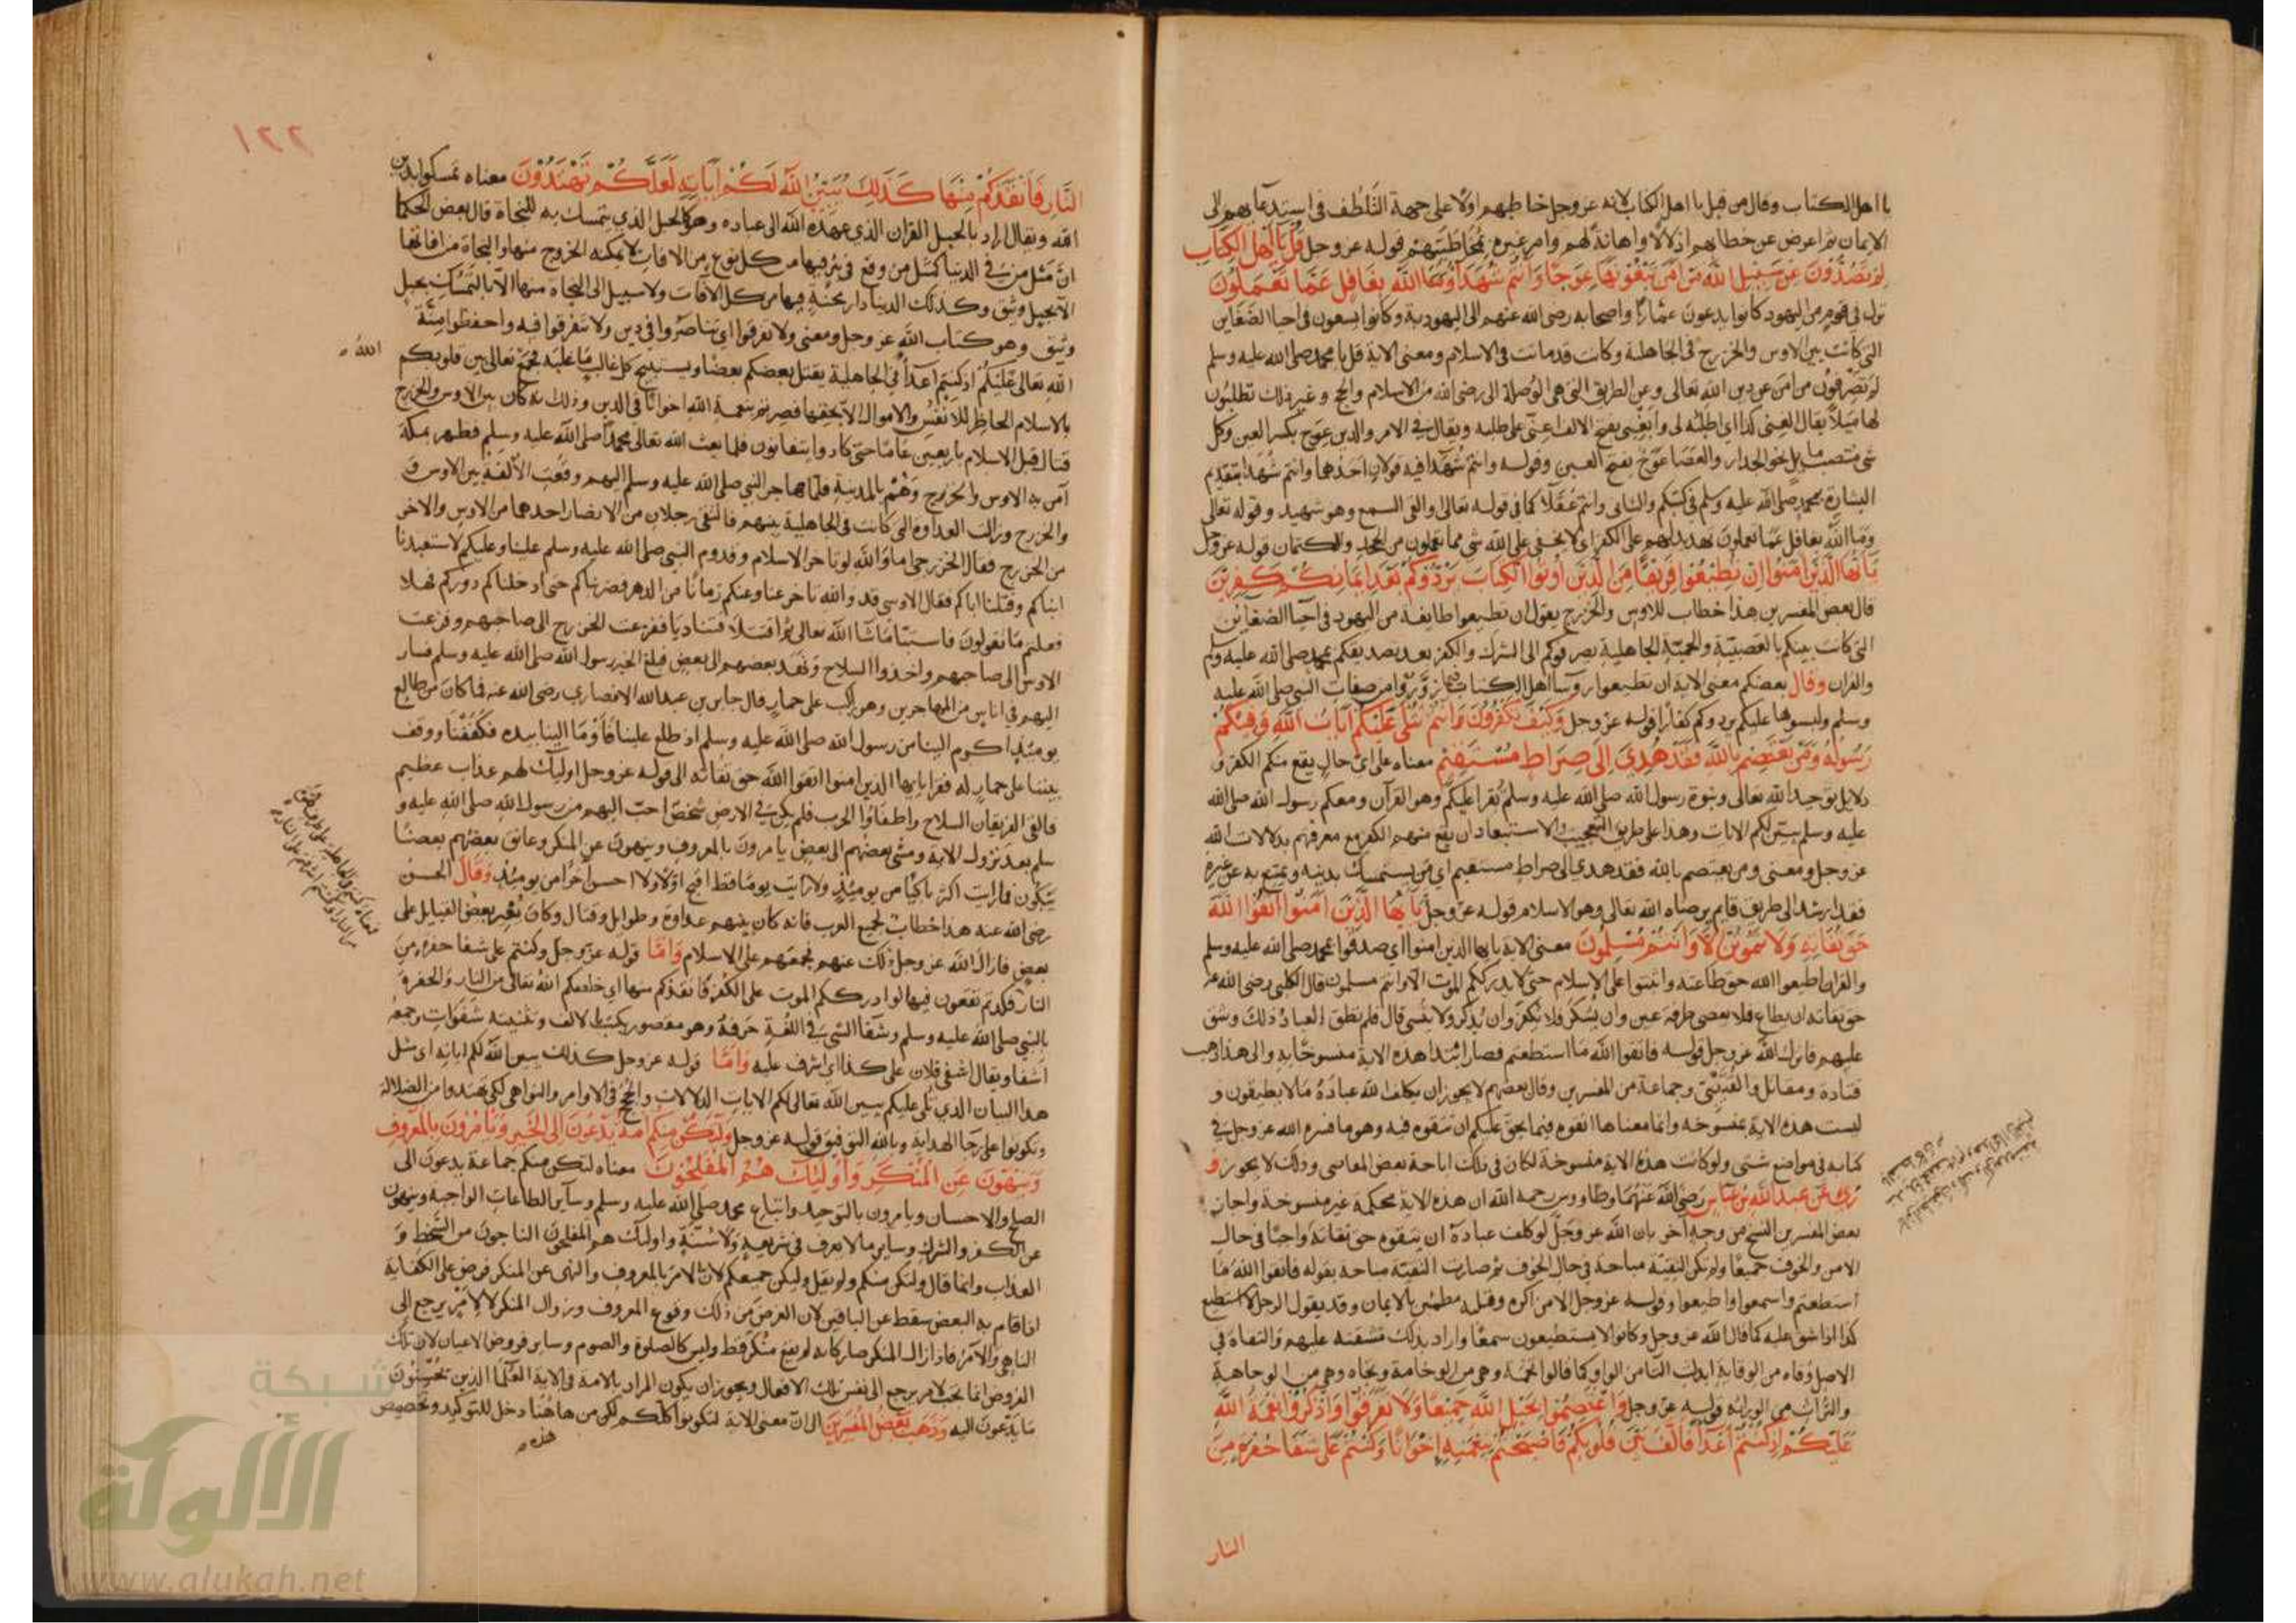 يا اهل الكتاب وقال من قبل يا اهل الكتاب لانه عز وجل خاطبهم اولا على جهة التلطف في استدعائهم الى
الايمان ثم اعرض عن خطابهم اذلالا واهانة لهم وامر غيره بمخاطبتهم قوله عز وجل قل يا اهل الكتاب
لم تصدون عن سبيل الله من امن تبغونها عوجا وانتم شهدا وما الله بغافل عما تعملون
نزل في قوم من اليهود كانوا يدعون عمارا واصحابه رضي الله عنهم الى اليهودية وكانوا يسعون في احيا الضغاين
التي كانت بين الاوس والخزرج في الجاهلية وكانت قد ماتت في الاسلام ومعنى الاية قل يا محمد صلى الله عليه وسلم
لم تصرفون من امن عن دين الله تعالى وعن الطريق التي هي الوصلة الى رضى الله من الاسلام والحج وغير ذلك تطلبون
لها ميلا يقال ابغني كذا اي اطلبه لي وابغني بفتح الالف اعني على طلبه ويقال في الامر والدين عوج بكسر العين وكل
شي منتصب مايل نحو الجدار والعصا عوج بفتح العين وقوله وانتم شهدا فيه قولان احدهما وانتم شهدا بتقديم
البشارة بمحمد صلى الله عليه وسلم في كتبكم والثاني وانتم عقلا كما في قوله تعالى والقى السمع وهو شهيد وقوله تعالى
وما الله بغافل عما تعملون تهديد لهم على الكفر اي لا يخفى على الله شي مما تعملون من الجحد والكتمان قوله عز وجل
يا ايها الذين امنوا ان تطيعوا فريقا من الذين اوتوا الكتاب يردوكم بعد ايمانكم كفرين
قال بعض المفسرين هذا خطاب للاوس والخزرج يقول ان تطيعوا طايفة من اليهود في احيا الضغاين
التي كانت بينكم بالعصبية والحمية الجاهلية يصرفوكم الى الشرك والكفر بعد تصديقكم بمحمد صلى الله عليه وسلم
والقران وقال بعضكم معنى الاية ان تطيعوا روسا اهل الكتاب زوروا من صفات النبي صلى الله عليه
وسلم ولبسوها عليكم يردوكم كفارا قوله عز وجل وكيف تكفرون وانتم تتلى عليكم ايات الله وفيكم
رسوله ومن يعتصم بالله فقد هدي الى صراط مستقيم معناه على اي حال يقع منكم الكفر و
دلايل توحيد الله تعالى ونبوة رسول الله صلى الله عليه وسلم تقرا عليكم وهو القرآن ومعكم رسول الله صلى الله
عليه وسلم يبين لكم الايات وهذا على طريق التعجيب والاستبعاد ان يقع منهم الكفر مع معرفتهم بدلالات الله
عز وجل ومعنى ومن يعتصم بالله فقد هدي الى صراط مستقيم اي من يستمسك بدينه ويمتنع به عن غيره
فقد ارشد الى طريق قايم يرضاه الله تعالى وهو الاسلام قوله عز وجل يا ايها الذين امنوا اتقوا الله
حق تقاته ولا تموتن الا وانتم مسلمون معنى الاية يا ايها الذين امنوا اي صدقوا بمحمد صلى الله عليه وسلم
والقران اطيعوا الله حق طاعته واثبتوا على الاسلام حتى لا يدرككم الموت الا وانتم مسلمون قال الكلبي رضي الله عنه
حق تقاته ان يطاع فلا يعصى طرفة عين وان يشكر فلا يكفر وان يذكر ولا ينسى قال فلم تطق العباد ذلك وشق
عليهم فانزل الله عز وجل قوله فاتقوا الله ما استطعتم فصار ابتدا هذه الاية منسوخا به والى هذا ذهب
قتادة ومقاتل والقتيبي وجماعة من المفسرين وقال بعضهم لا يجوز ان يكلف الله عباده ما لا يطيقون و
ليست هذه الاية بمنسوخة وانما معناها اتقوه فيما يحق عليكم ان تتقوه فيه وهو ما فسره الله عز وجل في
كتابه في مواضع شتى ولو كانت هذه الاية منسوخة لكان في ذلك اباحة بعض المعاصي وذلك لا يجوز و
روي عن عبد الله بن عباس رضي الله عنهما وطاووس رحمه الله ان هذه الاية محكمة غير منسوخة واجاز
بعض المفسرين النسخ من وجه آخر بان الله عز وجل لو كلف عباده ان يتقوه حق تقاته واجبا في حال
الامن والخوف جميعا ولم تكن التقية مباحة في حال الخوف ثم صارت التقية مباحة بقوله فاتقوا الله ما
استطعتم واسمعوا واطيعوا وقوله عز وجل الا من اكره وقلبه مطمئن بالايمان وقد يقول الرجل لا استطيع
كذا اذا شق عليه كما قال الله عز وجل وكانوا لا يستطيعون سمعا واراد بذلك مشقته عليهم والتقاة في
الاصل وقاه من الوقاية ابدلت التا من الواو كما قالوا تخمة وهي من الوخامة وتجاه وهي من الوجاهة
والتراث من الوراثة قوله عز وجل واعتصموا بحبل الله جميعا ولا تفرقوا واذكروا نعمة الله
عليكم اذ كنتم اعدا فالف بين قلوبكم فاصبحتم بنعمته اخوانا وكنتم على شفا حفرة من
النار
١٢٢
النار فانقذكم منها كذلك يبين الله لكم آياته لعلكم تهتدون معناه تمسكوا بدين
الله ويقال اراد بالحبل القران الذي عهده الله الى عباده وهو كالحبل الذي يتمسك به للنجاة قال بعض الحكما
ان مثل من في الدنيا كمثل من وقع في بئر فيها من كل نوع من الافات لا يمكنه الخروج منها والنجاة من افاتها
الا بحبل وثيق وكذلك الدنيا دار محنة فيها من كل الافات ولا سبيل الى النجاة منها الا بالتمسك بحبل
وثيق وهو كتاب الله عز وجل ومعنى ولا تفرقوا اي تناصروا في دين ولا تتفرقوا فيه واحفظوا منة
الله
الله تعالى عليكم اذ كنتم اعداً في الجاهلية يقتل بعضكم بعضا ويستبيح كل غالب ما غلبه فجمع تعالى بين قلوبكم
بالاسلام الحاظر للانفس والاموال الا بحقها فصرتم بنعمة الله اخوانا في الدين وذلك انه كان بين الاوس والخزرج
قتال قبل الاسلام باربعين عاما حتى كادوا يتفانون فلما بعث الله تعالى محمدا صلى الله عليه وسلم فظهر بمكة
آمن به الاوس والخزرج وهم بالمدينة فلما هاجر النبي صلى الله عليه وسلم اليهم وقعت الالفة بين الاوس
والخزرج وزالت العداوة التي كانت في الجاهلية بينهم فالتقى رجلان من الانصار احدهما من الاوس والاخر
من الخزرج فقال الخزرجي اما والله لو تاخر الاسلام وقدوم النبي صلى الله عليه وسلم علينا وعليكم لاستعبدنا
ابناكم وقتلنا اباكم فقال الاوسي قد والله تاخر عنا وعنكم زمانا من الدهر فضربناكم حتى ادخلناكم دوركم فهلا
فعلتم ما تقولون فاستبا ما شا الله تعالى ثم اقتتلا فتناديا ففزعت الخزرج الى صاحبهم وفزعت
الاوس الى صاحبهم واخذوا السلاح ونفد بعضهم الى بعض فبلغ الخبر رسول الله صلى الله عليه وسلم فسار
اليهم في اناس من المهاجرين وهو راكب على حمار قال جابر بن عبد الله الانصاري رضي الله عنه فما كان من طالع
يومئذ اكرم الينا من رسول الله صلى الله عليه وسلم اذ طلع علينا فاومأ الينا بيده فكففنا ووقف
بيننا على حمار له فقرا يا ايها الذين امنوا اتقوا الله حق تقاته الى قوله عز وجل اوليك لهم عذاب عظيم
فالقى الفريقان السلاح واطفاوا الحرب فلم يكن في الارض شخص احب اليهم من رسول الله صلى الله عليه و
سلم بعد نزول الاية ومشى بعضهم الى بعض يامرون بالمعروف وينهون عن المنكر وعانق بعضهم بعضا
يبكون فما رايت اكثر باكيا من يومئذ ولا رايت يوما قط اقبح اولا ولا احسن اخرا من يومئذ وقال الحسن
رضي الله عنه هذا خطاب لجميع العرب فانه كان بينهم عداوة وطوايل وقتال وكان يغير بعض القبايل على
بعض فازال الله عز وجل ذلك عنهم بجمعهم على الاسلام واما قوله عز وجل وكنتم على شفا حفرة من
النار فكدتم تقعون فيها لو ادرككم الموت على الكفر فانقذكم منها اي خلصكم الله تعالى من النار والحفرة
بالنبي صلى الله عليه وسلم وشفا الشي في اللغة حرفه وهو مقصور يكتب بالالف وتثنيته شفوان وجمعه
اشفا ويقال اشفى فلان على كذا اي اشرف عليه واما قوله عز وجل كذلك يبين الله لكم اياته اي مثل
هذا البيان الذي تلي عليكم يبين الله تعالى لكم الايات الدلالات والحجج في الاوامر والنواهي لكي تهتدوا من الضلالة
وتكونوا على رجا الهداية وبالله التوفيق قوله عز وجل ولتكن منكم امة يدعون الى الخير ويامرون بالمعروف
وينهون عن المنكر واوليك هم المفلحون معناه لتكن منكم جماعة يدعون الى
الصلح والاحسان ويامرون بالتوحيد واتباع محمد صلى الله عليه وسلم وساير الطاعات الواجبة وينهون
عن الكفر والشرك وساير ما لا يعرف في شريعة ولا سنة واوليك هم المفلحون الناجون من السخط و
العذاب وانما قال ولتكن منكم ولم يقل وليكن جميعكم لان الامر بالمعروف والنهي عن المنكر فرض على الكفاية
اذا قام به البعض سقط عن الباقين لان الغرض من ذلك وقوع المعروف وزوال المنكر لا لامر يرجع الى
الناهي والآمر فاذا زال المنكر صار كانه لم يقع منكر قط وليس كالصلوة والصوم وساير فروض الاعيان لان تلك
الفروض انما تجب لامر يرجع الى نفس تلك الافعال ويجوز ان يكون المراد بالامة في الاية العلما الذين يحسنون
ما يدعون اليه وذهب بعض المفسرين الى ان معنى الاية لتكونوا كلكم لكن من هاهنا دخل للتوكيد وتخصيص
هذه
شبكة
الألوكة
www.alukah.net